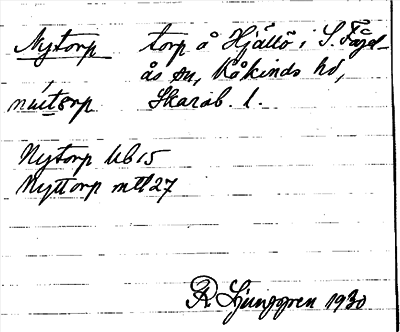 Nytorp torp å Hjällö i S. Fågel-
ås sn, Kåkinds hd,
nŷtorp Skarab. l.
Nytorp Ub 15
Nyttorp mtl 27
R Ljunggren 1930